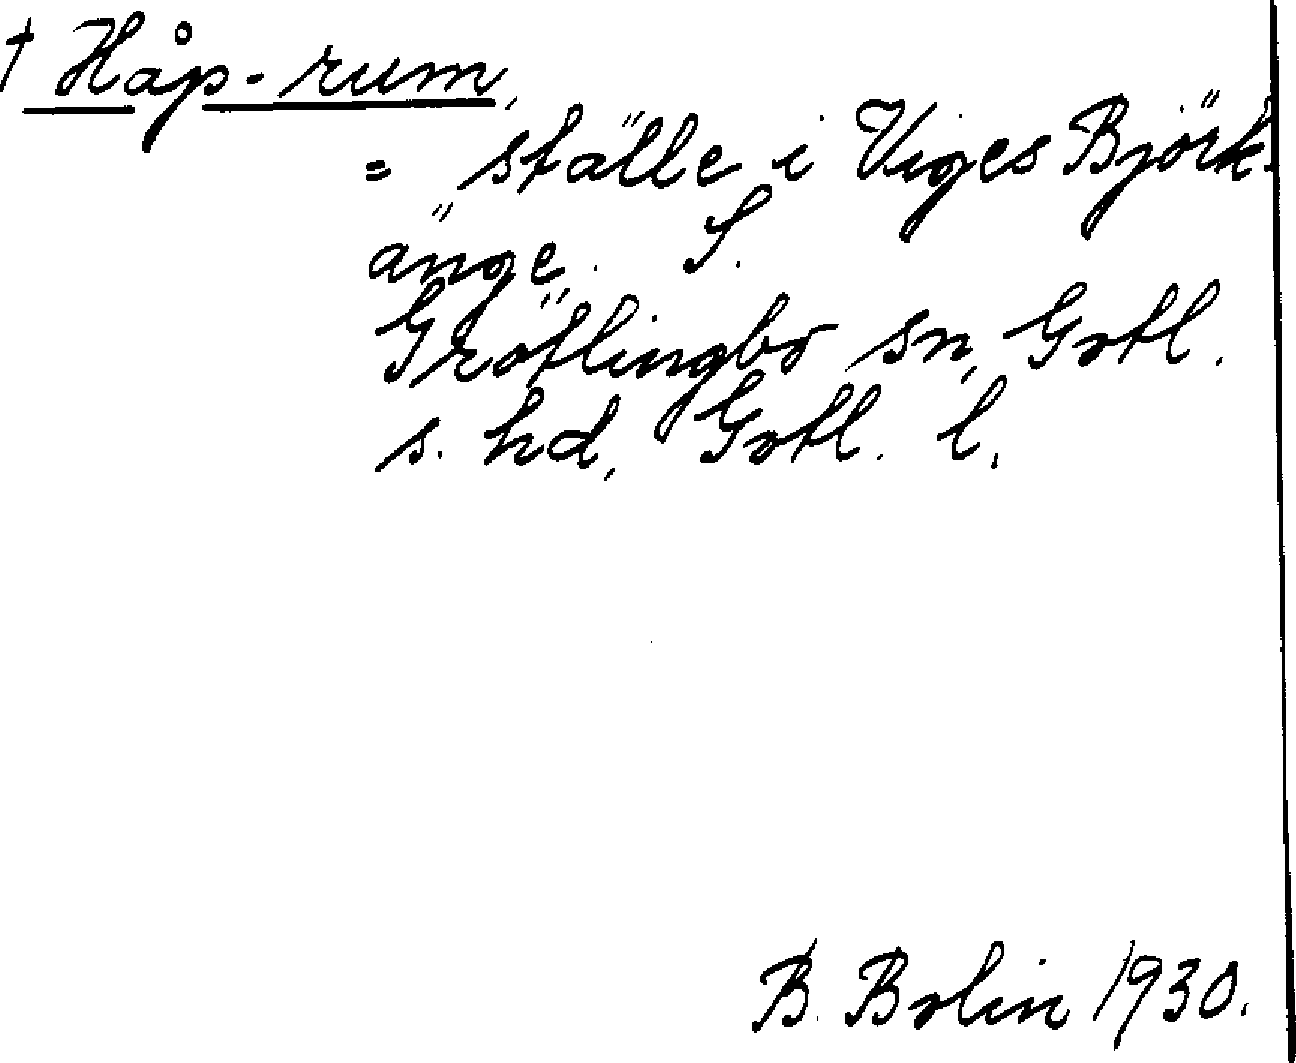 † Håp-rum,
= ställe i Viges Björk-
änge. S.
Grötlingbo sn, Gotl.
s. hd, Gotl. l.
B. Bolin 1930.